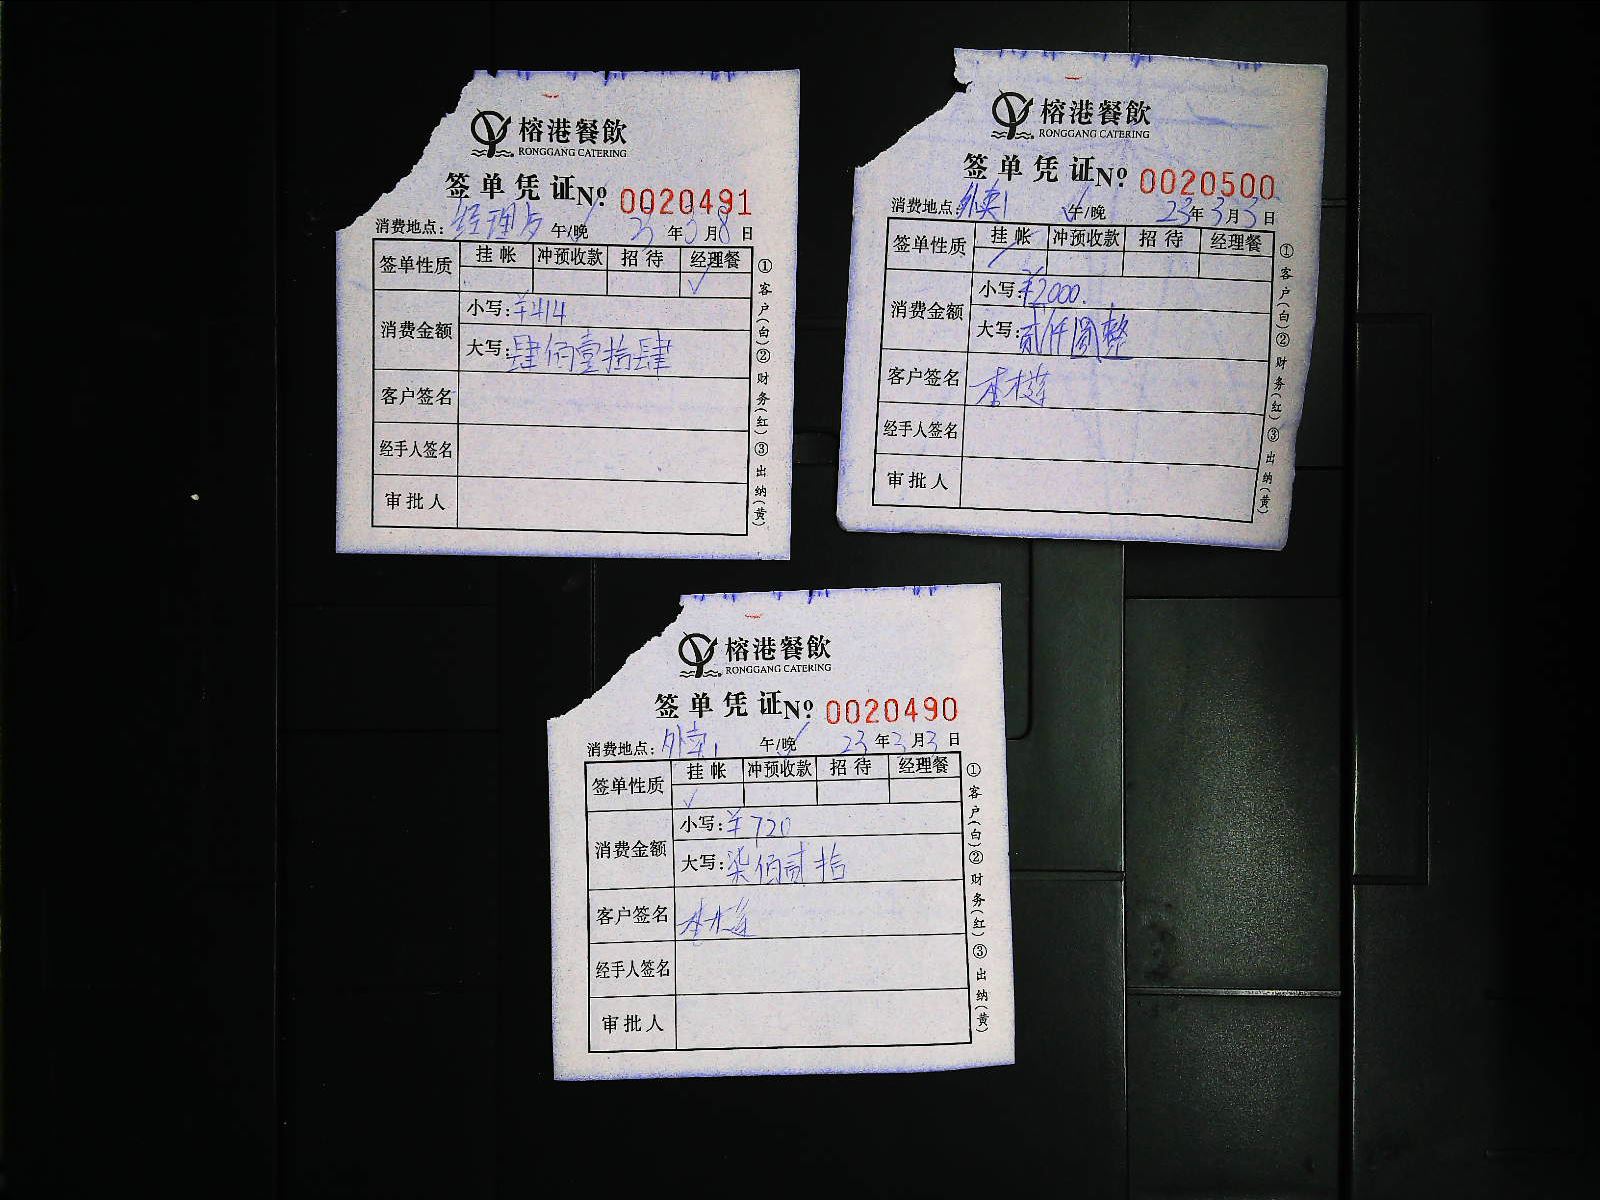 榕港餐飲
RONGGANG CATERING
签单凭证 Nº 0020491
消费地点: 经理 午/晚 23年3月8日
签单性质 挂帐 冲预收款 招待 经理餐
✓
消费金额
小写: ¥414
大写: 肆佰壹拾肆
客户签名
经手人签名
审批人
①客户(白)②财务(红)③出纳(黄)
榕港餐飲
RONGGANG CATERING
签单凭证 Nº 0020500
消费地点: 外卖1 午/晚 23年3月3日
签单性质 挂帐 冲预收款 招待 经理餐
消费金额
小写: ¥2000.
大写: 贰仟圆整
客户签名 李木莲
经手人签名
审批人
①客户(白)②财务(红)③出纳(黄)
榕港餐飲
RONGGANG CATERING
签单凭证 Nº 0020490
消费地点: 外卖1 午/晚 23年3月3日
签单性质 挂帐 冲预收款 招待 经理餐
✓
消费金额
小写: ¥720
大写: 柒佰贰拾
客户签名 李木莲
经手人签名
审批人
①客户(白)②财务(红)③出纳(黄)